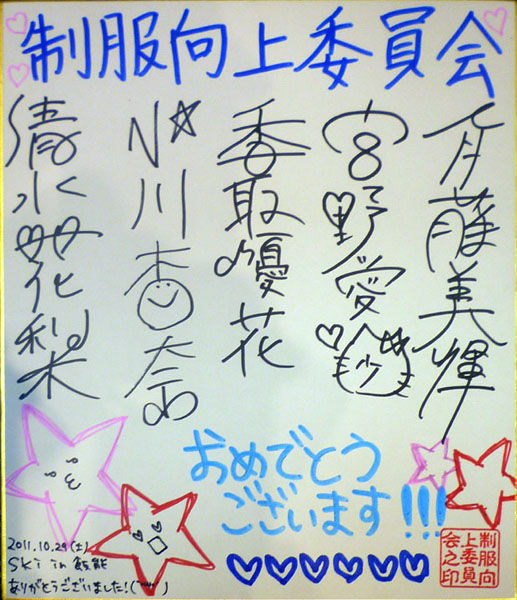 制服向上委員会
斉藤美輝
宮野愛
香取優花
小川杏奈
清水花梨
おめでとう
ございます!!!
2011.10.29(土)
SKi in 飯能
ありがとうございました!
制服向
上委員
会之印